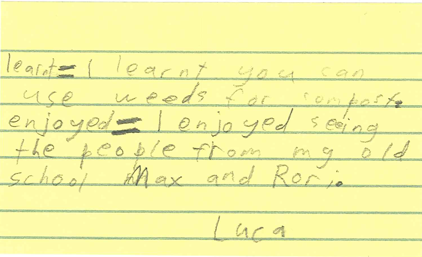 learnt = I learnt you can
use weeds for compost.
enjoyed = I enjoyed seeing
the people from my old
school Max and Rori.
Luca